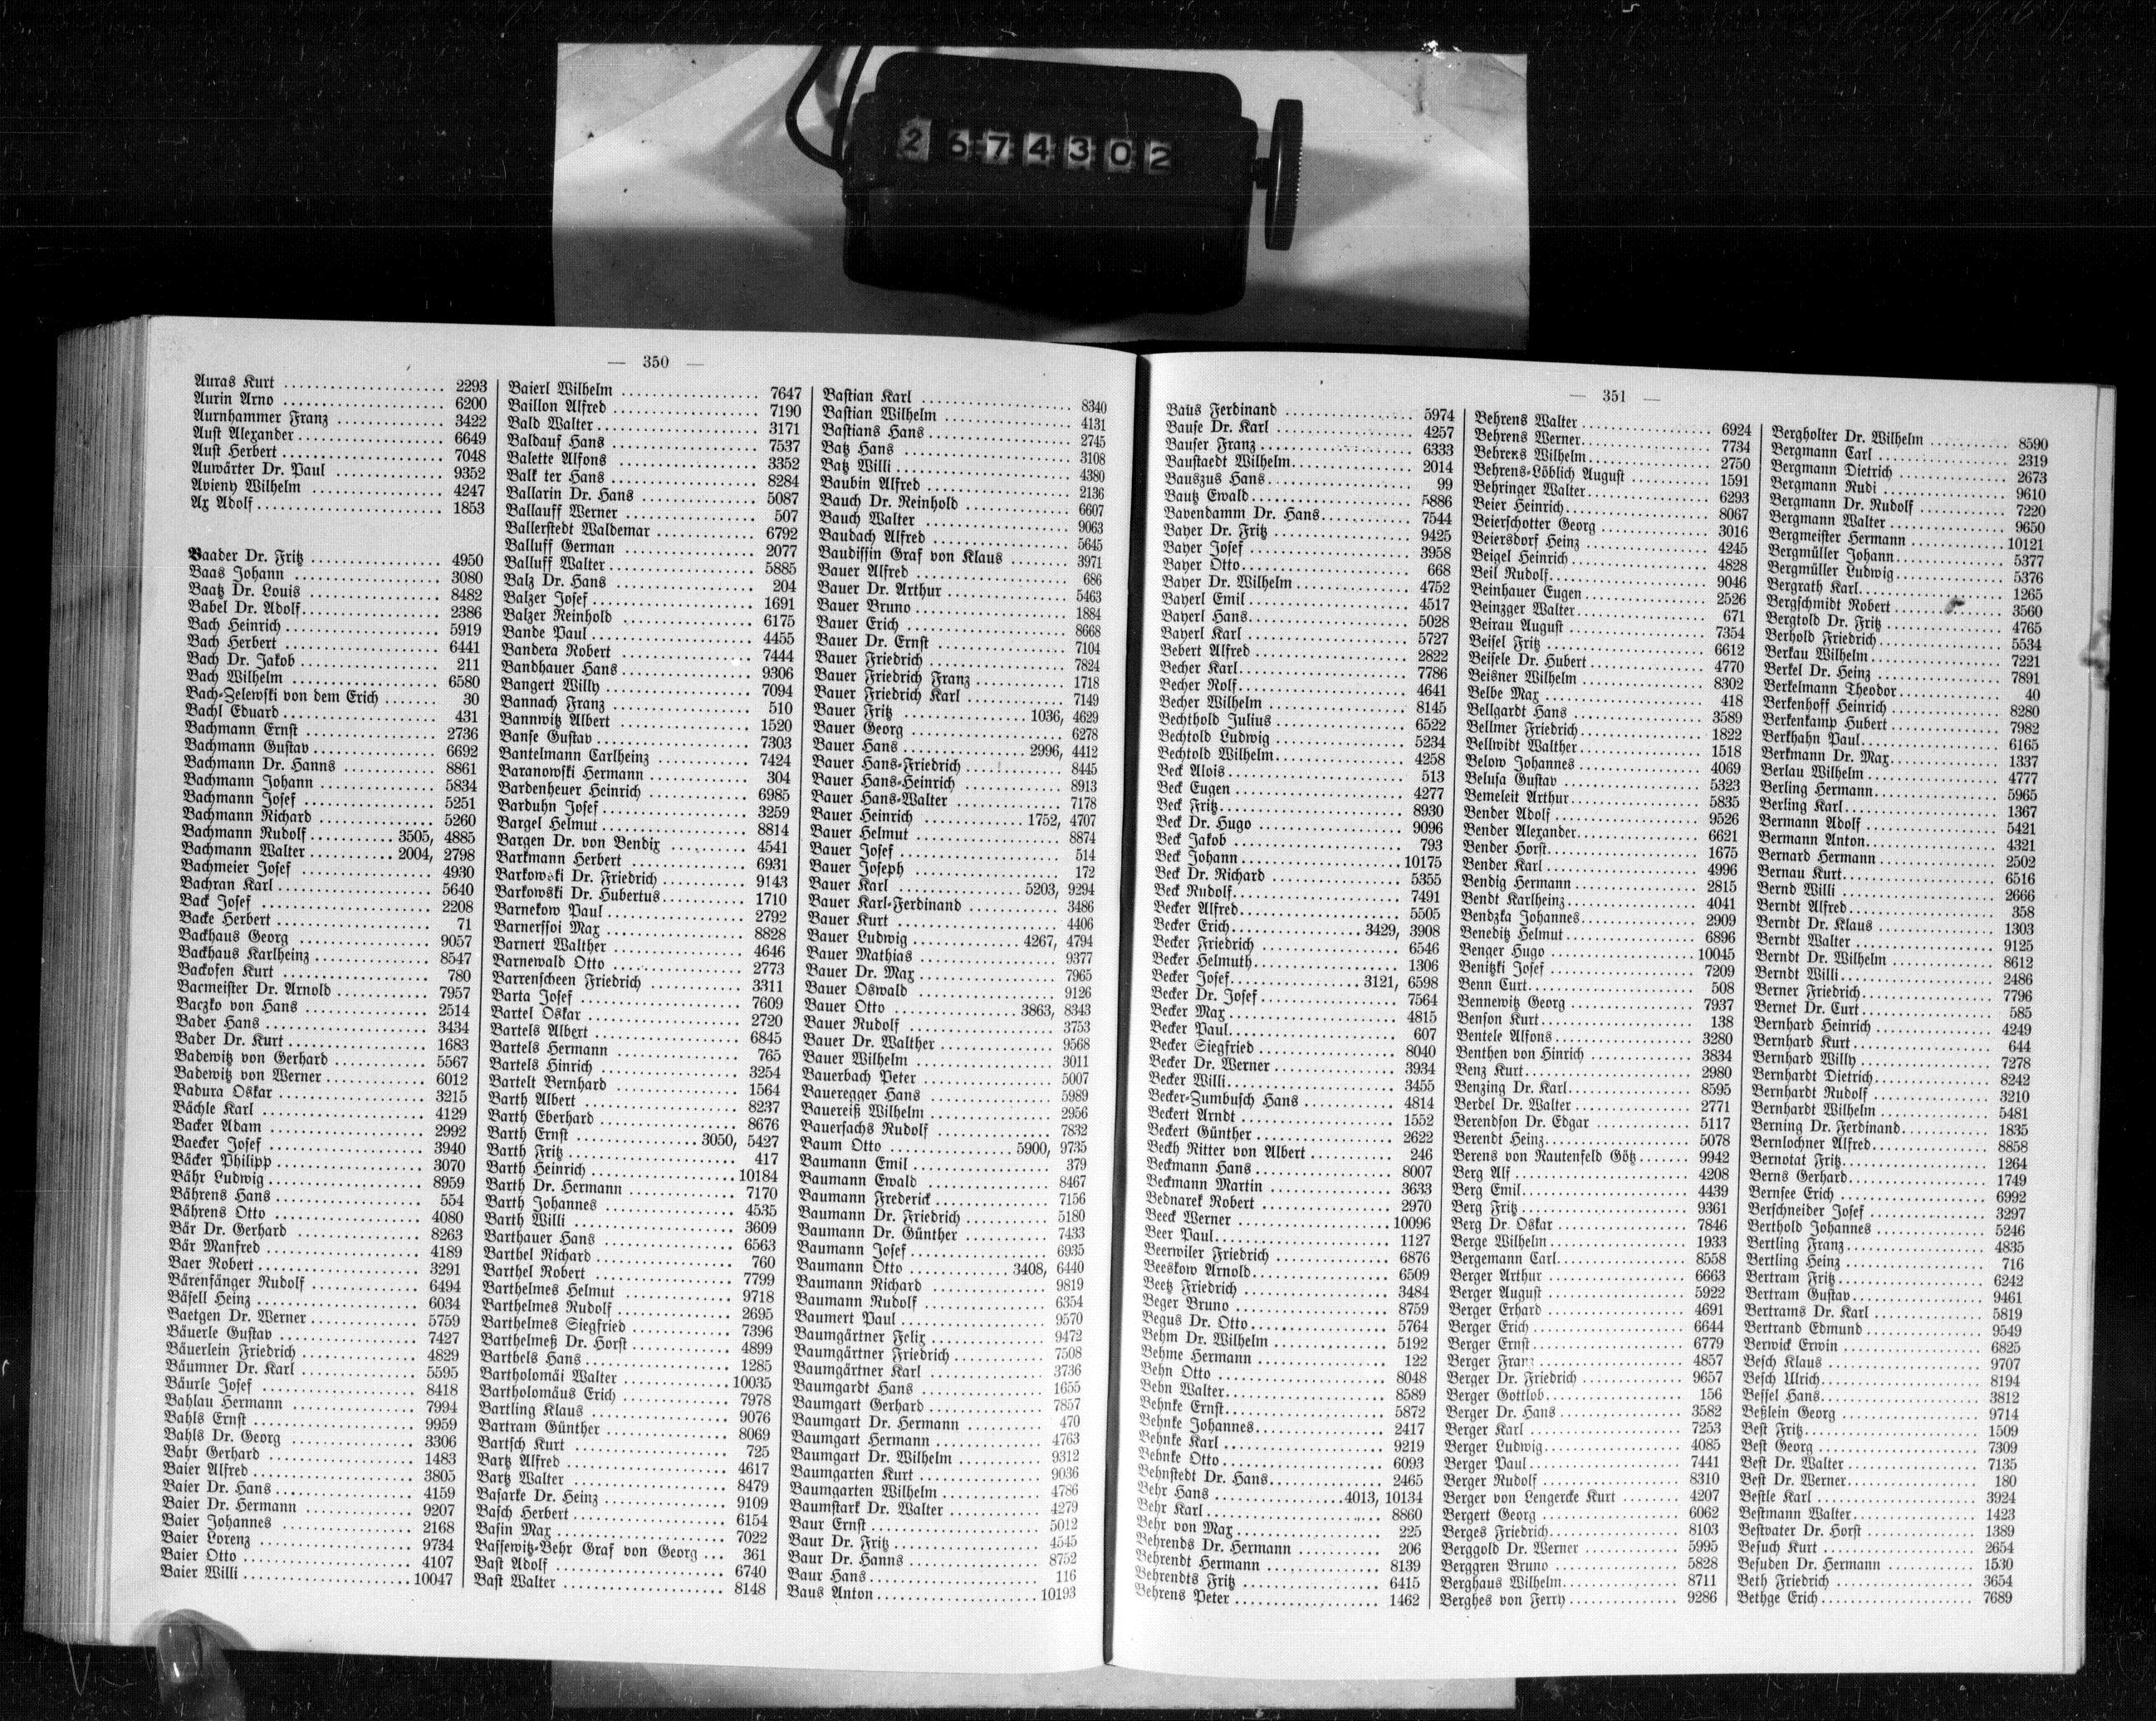 — 350 —
Auras Kurt ..... 2293
Aurin Arno ..... 6200
Aurnhammer Franz ..... 3422
Aust Alexander ..... 6649
Aust Herbert ..... 7048
Auwärter Dr. Paul ..... 9352
Avieny Wilhelm ..... 4247
Ax Adolf ..... 1853
Baader Dr. Fritz ..... 4950
Baas Johann ..... 3080
Baatz Dr. Louis ..... 8482
Babel Dr. Adolf ..... 2386
Bach Heinrich ..... 5919
Bach Herbert ..... 6441
Bach Dr. Jakob ..... 211
Bach Wilhelm ..... 6580
Bach-Zelewski von dem Erich ..... 30
Bachl Eduard ..... 431
Bachmann Ernst ..... 2736
Bachmann Gustav ..... 6692
Bachmann Dr. Hanns ..... 8861
Bachmann Johann ..... 5834
Bachmann Josef ..... 5251
Bachmann Richard ..... 5260
Bachmann Rudolf ..... 3505, 4885
Bachmann Walter ..... 2004, 2798
Bachmeier Josef ..... 4930
Bachran Karl ..... 5640
Back Josef ..... 2208
Backe Herbert ..... 71
Backhaus Georg ..... 9057
Backhaus Karlheinz ..... 8547
Backofen Kurt ..... 780
Bacmeister Dr. Arnold ..... 7957
Baczko von Hans ..... 2514
Bader Hans ..... 3434
Bader Dr. Kurt ..... 1683
Badewitz von Gerhard ..... 5567
Badewitz von Werner ..... 6012
Badura Oskar ..... 3215
Bächle Karl ..... 4129
Bäcker Adam ..... 2992
Baecker Josef ..... 3940
Bäcker Philipp ..... 3070
Bähr Ludwig ..... 8959
Bährens Hans ..... 554
Bährens Otto ..... 4080
Bär Dr. Gerhard ..... 8263
Bär Manfred ..... 4189
Baer Robert ..... 3291
Bärenfänger Rudolf ..... 6494
Bäsell Heinz ..... 6034
Baetgen Dr. Werner ..... 5759
Bäuerle Gustav ..... 7427
Bäuerlein Friedrich ..... 4829
Bäumner Dr. Karl ..... 5595
Bäurle Josef ..... 8418
Bahlau Hermann ..... 7994
Bahls Ernst ..... 9959
Bahls Dr. Georg ..... 3306
Bahr Gerhard ..... 1483
Baier Alfred ..... 3805
Baier Dr. Hans ..... 4159
Baier Dr. Hermann ..... 9207
Baier Johannes ..... 2168
Baier Lorenz ..... 9734
Baier Otto ..... 4107
Baier Willi ..... 10047
Baierl Wilhelm ..... 7647
Baillon Alfred ..... 7190
Bald Walter ..... 3171
Baldauf Hans ..... 7537
Balette Alfons ..... 3352
Balk ter Hans ..... 8284
Ballarin Dr. Hans ..... 5087
Ballauff Werner ..... 507
Ballerstedt Waldemar ..... 6792
Balluff German ..... 2077
Balluff Walter ..... 5885
Balz Dr. Hans ..... 204
Balzer Josef ..... 1691
Balzer Reinhold ..... 6175
Bande Paul ..... 4455
Bandera Robert ..... 7444
Bandhauer Hans ..... 9306
Bangert Willy ..... 7094
Bannach Franz ..... 510
Bannwitz Albert ..... 1520
Banse Gustav ..... 7303
Bantelmann Carlheinz ..... 7424
Baranowski Hermann ..... 304
Bardenheuer Heinrich ..... 6985
Barduhn Josef ..... 3259
Bargel Helmut ..... 8814
Bargen Dr. von Bendix ..... 4541
Barkmann Herbert ..... 6931
Barkowski Dr. Friedrich ..... 9143
Barkowski Dr. Hubertus ..... 1710
Barnekow Paul ..... 2792
Barnerssoi Max ..... 8828
Barnert Walther ..... 4646
Barnewald Otto ..... 2773
Barrenscheen Friedrich ..... 3311
Barta Josef ..... 7609
Bartel Oskar ..... 2720
Bartels Albert ..... 6845
Bartels Hermann ..... 765
Bartels Hinrich ..... 3254
Bartelt Bernhard ..... 1564
Barth Albert ..... 8237
Barth Eberhard ..... 8676
Barth Ernst ..... 3050, 5427
Barth Fritz ..... 417
Barth Heinrich ..... 10184
Barth Dr. Hermann ..... 7170
Barth Johannes ..... 4535
Barth Willi ..... 3609
Barthauer Hans ..... 6563
Barthel Richard ..... 760
Barthel Robert ..... 7799
Barthelmes Helmut ..... 9718
Barthelmes Rudolf ..... 2695
Barthelmes Siegfried ..... 7396
Barthelmeß Dr. Horst ..... 4899
Barthels Hans ..... 1285
Bartholomäi Walter ..... 10035
Bartholomäus Erich ..... 7978
Bartling Klaus ..... 9076
Bartram Günther ..... 8069
Bartsch Kurt ..... 725
Bartz Alfred ..... 4617
Bartz Walter ..... 8479
Basarke Dr. Heinz ..... 9109
Basch Herbert ..... 6154
Basin Max ..... 7022
Bassewitz-Behr Graf von Georg ... 361
Bast Adolf ..... 6740
Bast Walter ..... 8148
Bastian Karl ..... 8340
Bastian Wilhelm ..... 4131
Bastians Hans ..... 2745
Batz Hans ..... 3108
Batz Willi ..... 4380
Baubin Alfred ..... 2136
Bauch Dr. Reinhold ..... 6607
Bauch Walter ..... 9063
Baudach Alfred ..... 5645
Baudissin Graf von Klaus ..... 3971
Bauer Alfred ..... 686
Bauer Dr. Arthur ..... 5463
Bauer Bruno ..... 1884
Bauer Erich ..... 8668
Bauer Dr. Ernst ..... 7104
Bauer Friedrich ..... 7824
Bauer Friedrich Franz ..... 1718
Bauer Friedrich Karl ..... 7149
Bauer Fritz ..... 1036, 4629
Bauer Georg ..... 6278
Bauer Hans ..... 2996, 4412
Bauer Hans-Friedrich ..... 8445
Bauer Hans-Heinrich ..... 8913
Bauer Hans-Walter ..... 7178
Bauer Heinrich ..... 1752, 4707
Bauer Helmut ..... 8874
Bauer Josef ..... 514
Bauer Joseph ..... 172
Bauer Karl ..... 5203, 9294
Bauer Karl-Ferdinand ..... 3486
Bauer Kurt ..... 4406
Bauer Ludwig ..... 4267, 4794
Bauer Mathias ..... 9377
Bauer Dr. Max ..... 7965
Bauer Oswald ..... 9126
Bauer Otto ..... 3863, 8343
Bauer Rudolf ..... 3753
Bauer Dr. Walther ..... 9568
Bauer Wilhelm ..... 3011
Bauerbach Peter ..... 5007
Baueregger Hans ..... 5989
Bauereiß Wilhelm ..... 2956
Bauersachs Rudolf ..... 7832
Baum Otto ..... 5900, 9735
Baumann Emil ..... 379
Baumann Ewald ..... 8467
Baumann Frederick ..... 7156
Baumann Dr. Friedrich ..... 5180
Baumann Dr. Günther ..... 7433
Baumann Josef ..... 6935
Baumann Otto ..... 3408, 6440
Baumann Richard ..... 9819
Baumann Rudolf ..... 6354
Baumert Paul ..... 9570
Baumgärtner Felix ..... 9472
Baumgärtner Friedrich ..... 7508
Baumgärtner Karl ..... 3736
Baumgardt Hans ..... 1655
Baumgart Gerhard ..... 7857
Baumgart Dr. Hermann ..... 470
Baumgart Hermann ..... 4763
Baumgart Dr. Wilhelm ..... 9312
Baumgarten Kurt ..... 9036
Baumgarten Wilhelm ..... 4786
Baumstark Dr. Walter ..... 4279
Baur Ernst ..... 5012
Baur Dr. Fritz ..... 4545
Baur Dr. Hanns ..... 8752
Baur Hans ..... 116
Baus Anton ..... 10193
— 351 —
Baus Ferdinand ..... 5974
Bause Dr. Karl ..... 4257
Bauser Franz ..... 6333
Baustaedt Wilhelm ..... 2014
Bauszus Hans ..... 99
Bautz Ewald ..... 5886
Bavendamm Dr. Hans ..... 7544
Bayer Dr. Fritz ..... 9425
Bayer Josef ..... 3958
Bayer Otto ..... 668
Bayer Dr. Wilhelm ..... 4752
Bayerl Emil ..... 4517
Bayerl Hans ..... 5028
Bayerl Karl ..... 5727
Bebert Alfred ..... 2822
Becher Karl ..... 7786
Becher Rolf ..... 4641
Becher Wilhelm ..... 8145
Bechthold Julius ..... 6522
Bechtold Ludwig ..... 5234
Bechtold Wilhelm ..... 4258
Beck Alois ..... 513
Beck Eugen ..... 4277
Beck Fritz ..... 8930
Beck Dr. Hugo ..... 9096
Beck Jakob ..... 793
Beck Johann ..... 10175
Beck Dr. Richard ..... 5355
Beck Rudolf ..... 7491
Becker Alfred ..... 5505
Becker Erich ..... 3429, 3908
Becker Friedrich ..... 6546
Becker Helmuth ..... 1306
Becker Josef ..... 3121, 6598
Becker Dr. Josef ..... 7564
Becker Max ..... 4815
Becker Paul ..... 607
Becker Siegfried ..... 8040
Becker Dr. Werner ..... 3934
Becker Willi ..... 3455
Becker-Zumbusch Hans ..... 4814
Beckert Arndt ..... 1552
Beckert Günther ..... 2622
Beckh Ritter von Albert ..... 246
Beckmann Hans ..... 8007
Beckmann Martin ..... 3633
Bednarek Robert ..... 2970
Beeck Werner ..... 10096
Beer Paul ..... 1127
Beerwiler Friedrich ..... 6876
Beeskow Arnold ..... 6509
Beetz Friedrich ..... 3484
Beger Bruno ..... 8759
Begus Dr. Otto ..... 5764
Behm Dr. Wilhelm ..... 5192
Behme Hermann ..... 122
Behn Otto ..... 8048
Behn Walter ..... 8589
Behnke Ernst ..... 5872
Behnke Johannes ..... 2417
Behnke Karl ..... 9219
Behnke Otto ..... 6093
Behnstedt Dr. Hans ..... 2465
Behr Hans ..... 4013, 10134
Behr Karl ..... 8860
Behr von Max ..... 225
Behrends Dr. Hermann ..... 206
Behrendt Hermann ..... 8139
Behrendts Fritz ..... 6415
Behrens Peter ..... 1462
Behrens Walter ..... 6924
Behrens Werner ..... 7734
Behrens Wilhelm ..... 2750
Behrens-Löblich August ..... 1591
Behringer Walter ..... 6293
Beier Heinrich ..... 8067
Beierschotter Georg ..... 3016
Beiersdorf Heinz ..... 4245
Beigel Heinrich ..... 4828
Beil Rudolf ..... 9046
Beinhauer Eugen ..... 2526
Beinzger Walter ..... 671
Beirau August ..... 7354
Beisel Fritz ..... 6612
Beisele Dr. Hubert ..... 4770
Beisner Wilhelm ..... 8302
Belbe Max ..... 418
Bellgardt Hans ..... 3589
Bellmer Friedrich ..... 1822
Bellwidt Walther ..... 1518
Below Johannes ..... 4069
Belusa Gustav ..... 5323
Bemeleit Arthur ..... 5835
Bender Adolf ..... 9526
Bender Alexander ..... 6621
Bender Horst ..... 1675
Bender Karl ..... 4996
Bendig Hermann ..... 2815
Bendt Karlheinz ..... 4041
Bendzka Johannes ..... 2909
Beneditz Helmut ..... 6896
Benger Hugo ..... 10045
Benitzki Josef ..... 7209
Benn Curt ..... 508
Bennewitz Georg ..... 7937
Benson Kurt ..... 138
Bentele Alfons ..... 3280
Benthen von Hinrich ..... 3834
Benz Kurt ..... 2980
Benzing Dr. Karl ..... 8595
Berdel Dr. Walter ..... 2771
Berendson Dr. Edgar ..... 5117
Berendt Heinz ..... 5078
Berens von Rautenfeld Götz ..... 9942
Berg Alf ..... 4208
Berg Emil ..... 4439
Berg Fritz ..... 9361
Berg Dr. Oskar ..... 7846
Berge Wilhelm ..... 1933
Bergemann Carl ..... 8558
Berger Arthur ..... 6663
Berger August ..... 5922
Berger Erhard ..... 4691
Berger Erich ..... 6644
Berger Ernst ..... 6779
Berger Franz ..... 4857
Berger Dr. Friedrich ..... 9657
Berger Gottlob ..... 156
Berger Dr. Hans ..... 3582
Berger Karl ..... 7253
Berger Ludwig ..... 4085
Berger Paul ..... 7441
Berger Rudolf ..... 8310
Berger von Lengercke Kurt ..... 4207
Bergert Georg ..... 6062
Berges Friedrich ..... 8103
Berggold Dr. Werner ..... 5995
Berggren Bruno ..... 5828
Berghaus Wilhelm ..... 8711
Berghes von Ferry ..... 9286
Bergholter Dr. Wilhelm ..... 8590
Bergmann Carl ..... 2319
Bergmann Dietrich ..... 2673
Bergmann Rudi ..... 9610
Bergmann Dr. Rudolf ..... 7220
Bergmann Walter ..... 9650
Bergmeister Hermann ..... 10121
Bergmüller Johann ..... 5377
Bergmüller Ludwig ..... 5376
Bergrath Karl ..... 1265
Bergschmidt Robert ..... 3560
Bergtold Dr. Fritz ..... 4765
Berhold Friedrich ..... 5534
Berkau Wilhelm ..... 7221
Berkel Dr. Heinz ..... 7891
Berkelmann Theodor ..... 40
Berkenhoff Heinrich ..... 8280
Berkenkamp Hubert ..... 7982
Berkhahn Paul ..... 6165
Berkmann Dr. Max ..... 1337
Berlau Wilhelm ..... 4777
Berling Hermann ..... 5965
Berling Karl ..... 1367
Bermann Adolf ..... 5421
Bermann Anton ..... 4321
Bernard Hermann ..... 2502
Bernau Kurt ..... 6516
Bernd Willi ..... 2666
Berndt Alfred ..... 358
Berndt Dr. Klaus ..... 1303
Berndt Walter ..... 9125
Berndt Dr. Wilhelm ..... 8612
Berndt Willi ..... 2486
Berner Friedrich ..... 7796
Bernet Dr. Curt ..... 585
Bernhard Heinrich ..... 4249
Bernhard Kurt ..... 644
Bernhard Willy ..... 7278
Bernhardt Dietrich ..... 8242
Bernhardt Rudolf ..... 3210
Bernhardt Wilhelm ..... 5481
Berning Dr. Ferdinand ..... 1835
Bernlochner Alfred ..... 8858
Bernotat Fritz ..... 1264
Berns Gerhard ..... 1749
Bernsee Erich ..... 6992
Berschneider Josef ..... 3297
Berthold Johannes ..... 5246
Bertling Franz ..... 4835
Bertling Heinz ..... 716
Bertram Fritz ..... 6242
Bertram Gustav ..... 9461
Bertrams Dr. Karl ..... 5819
Bertrand Edmund ..... 9549
Berwick Erwin ..... 6825
Besch Klaus ..... 9707
Besch Ulrich ..... 8194
Bessel Hans ..... 3812
Beßlein Georg ..... 9714
Best Fritz ..... 1509
Best Georg ..... 7309
Best Dr. Walter ..... 7135
Best Dr. Werner ..... 180
Bestle Karl ..... 3924
Bestmann Walter ..... 1423
Bestvater Dr. Horst ..... 1389
Besuch Kurt ..... 2654
Besuden Dr. Hermann ..... 1530
Beth Friedrich ..... 3654
Bethge Erich ..... 7689
2674302